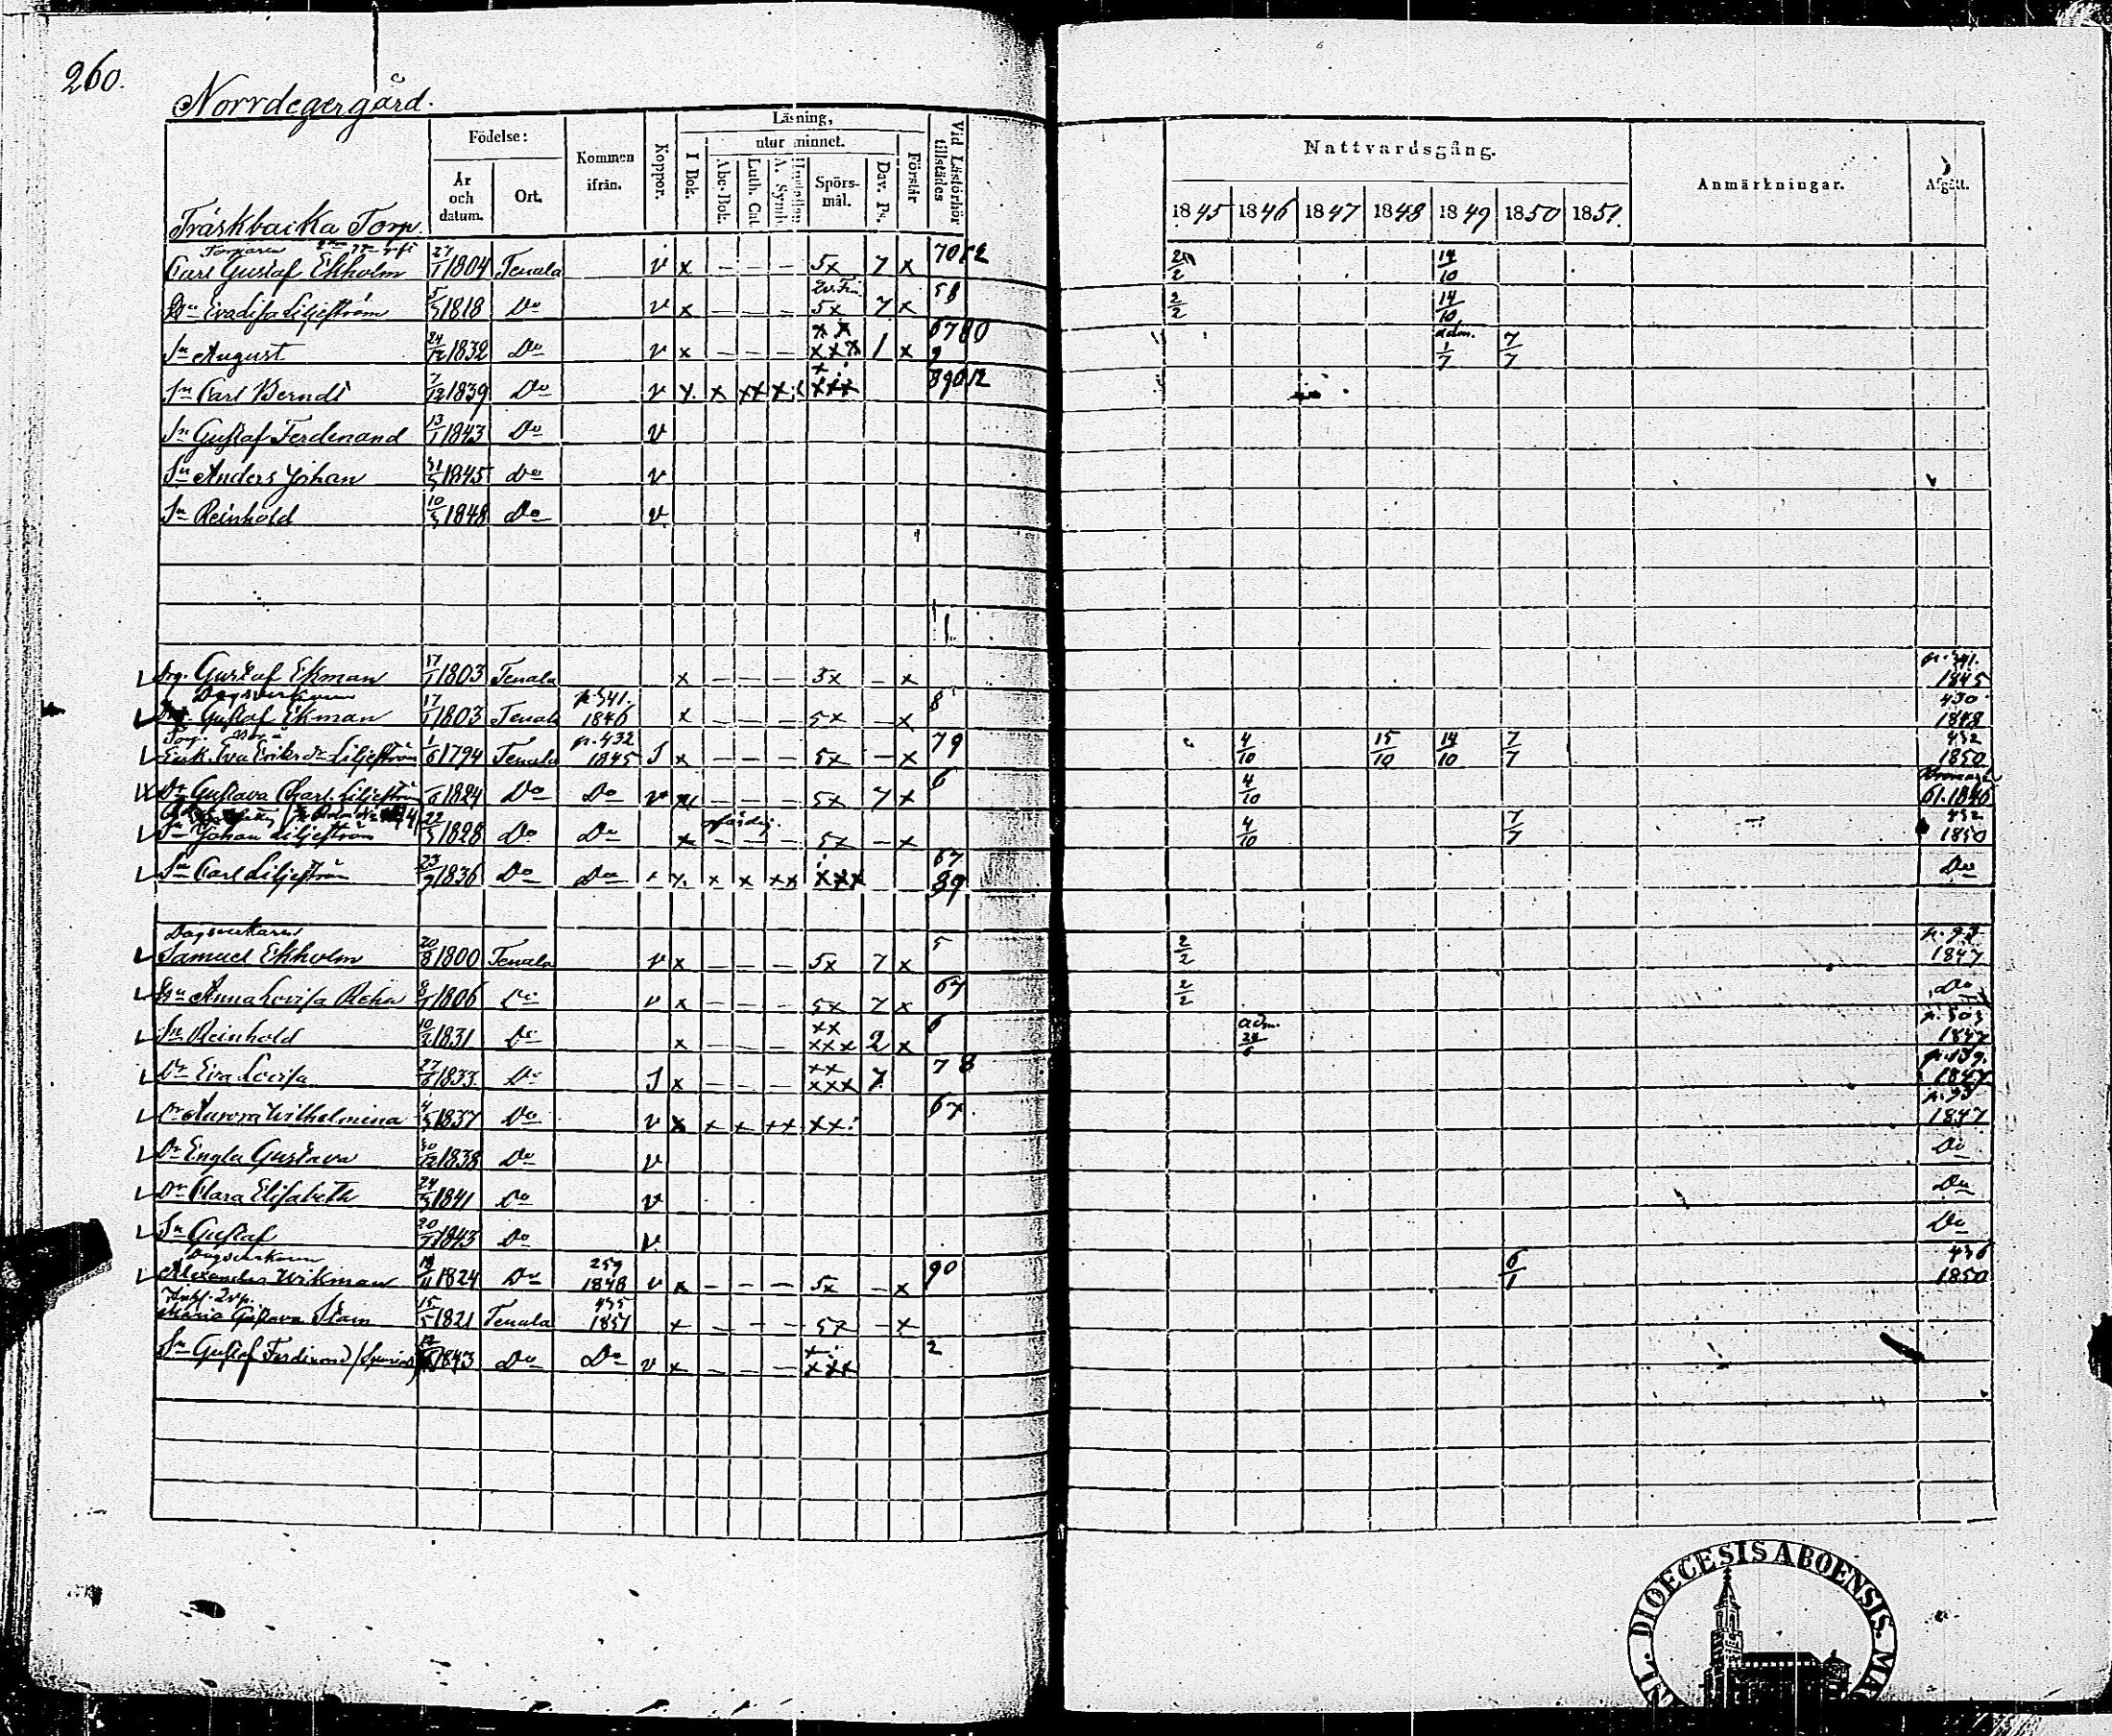 260.
Norrdegergård.
Träskbacka Torp.
Födelse:
År och datum.
Ort.
Kommen ifrån.
Koppor.
Läsning,
I Bok.
utur minnet.
Abc-Bok.
Luth. Cat
A. Symb
Spörs-mål.
Dav. Ps.
Förstår
Vid Läsförhör tillstädes
Nattvardsgång.
1845 1846 1847 1848 1849 1850 1851
Anmärkningar.
Afgått.
Torparen
Carl Gustaf Ekholm 27/1 1804 Tenala v x – – – 5x 7 x 2/2 14/10
Hu Eva Lisa Liljeström 5/5 1818 Do v x – – – 5x 7 x 58 2/2 14/10
Sn August 24/12 1832 Do v x – – – xx xxx 1 x 6780 9 adm. 1/7 7/7
Sn Carl Berndt 7/12 1839 Do v x x xx x xxx
Sn Gustaf Ferdinand 13/1 1843 Do v
Sn Anders Johan 1845 Do v
Sn Reinhold 10/5 1848 Do v
Drg. Gustaf Ekman 17/1 1803 Tenala x – – – 5x – x p. 341. 1845
Dagsverkaren
Gustaf Ekman 17/1 1803 Tenala p. 341. 1846 x – – – 5x – x 8 430 1848
Enk. Eva Eriksdr Liljeström 1/6 1794 Tenala p. 432 1845 J x – – – 5x – x 79 4/10 15/10 14/10 7/7 432 1850
Dr Gustava Charl. Liljeström 1824 Do Do v x – – – 5x 7 x 6 4/10 61. 1846
Sn Johan Liljeström 22/5 1828 Do Do x – – – 5x – x 4/10 7/7 432 1850
Sn Carl Liljeström 23/9 1836 Do Do x x x xx xxx 67 89 Do
Dagsverkaren
Samuel Ekholm 20/8 1800 Tenala v x – – – 5x 7 x 5 2/2 1847
Hu Anna Lovisa 1806 Do v x – – – 5x 7 x 67 2/2 Do
Sn Reinhold 10/2 1831 Do x – – – xx xxx 2 x 6 adm. 1847
Dr Eva Lovisa 27/6 1833 Do J x – – – xx xxx 7 78 1847
Dr Aurora Wilhelmina 4/5 1837 Do v x x x xx xx 67 1847
Dr Engla Gustava 30/12 1838 Do v Do
Dr Clara Elisabeth 24/5 1841 Do v Do
Sn Gustaf 20/7 1843 Do v Do
Dagsverkaren
Alexander Wikman 1824 Do 259 1848 v x – – – 5x – x 90 6/1 436 1850
Maria Gustava Stam 15/5 1821 Tenala 435 1851 x – – – 5x – x
Sn Gustaf Ferdinand 1843 Do Do v x – – – xxx 2
DIOECESIS ABOENSIS.